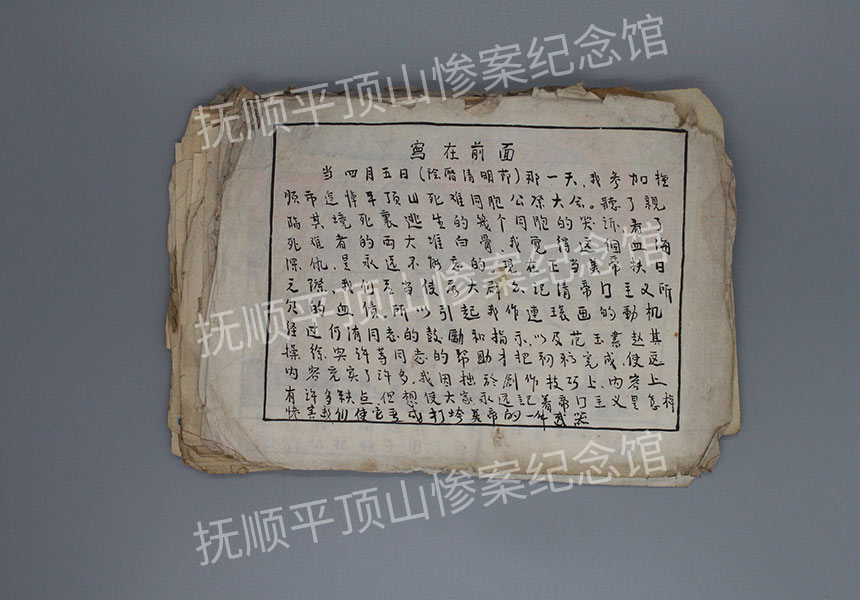 抚顺平顶山惨案纪念馆
寫在前面
当四月五日(阴曆清明節)那一天,我参加抚
順市追悼平顶山死难同胞公祭大会。聽了親
临其境死裏逃生的幾个同胞的哭訴,看了
死难者的両大堆白骨,我覚得这個血海
深仇,是永远不能忘的,現在正当美帝扶日
之際,我们应当使大家記清帝囗主义所
欠的血債,所以引起我作連環画的動机
経过何洧同志的鼓勵和指示,以及范玉書赵其
同志的幫助才把初稿完成,使这
内容充实了許多,我因拙於創作技巧上,内容上
有許多缺点,但想使大家永远記着帝囗主义是怎样
使它变成打垮美帝的一件武器
抚顺平顶山惨案纪念馆
抚顺平顶山惨案纪念馆